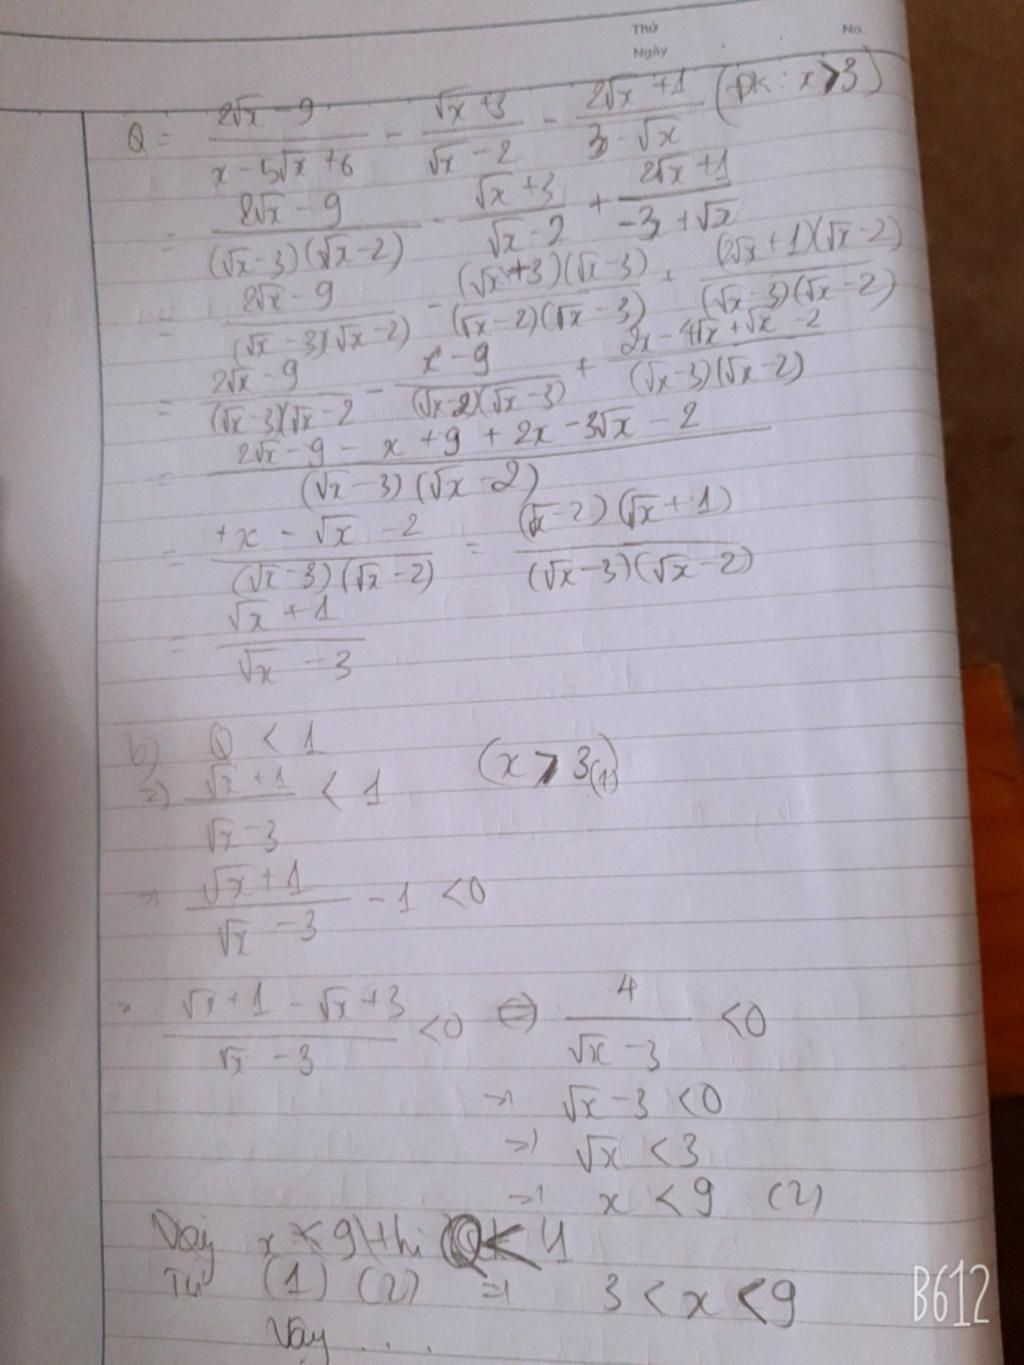 Thứ No
Ngày
Q = \frac{2\sqrt{x} - 9}{x - 5\sqrt{x} + 6} - \frac{\sqrt{x} + 3}{\sqrt{x} - 2} - \frac{2\sqrt{x} + 1}{3 - \sqrt{x}} (ĐK: x > 3)
= \frac{2\sqrt{x} - 9}{(\sqrt{x} - 3)(\sqrt{x} - 2)} - \frac{\sqrt{x} + 3}{\sqrt{x} - 2} + \frac{2\sqrt{x} + 1}{-3 + \sqrt{x}}
= \frac{2\sqrt{x} - 9}{(\sqrt{x} - 3)(\sqrt{x} - 2)} - \frac{(\sqrt{x} + 3)(\sqrt{x} - 3)}{(\sqrt{x} - 2)(\sqrt{x} - 3)} + \frac{(2\sqrt{x} + 1)(\sqrt{x} - 2)}{(\sqrt{x} - 3)(\sqrt{x} - 2)}
= \frac{2\sqrt{x} - 9}{(\sqrt{x} - 3)(\sqrt{x} - 2} - \frac{x - 9}{(\sqrt{x} - 2)(\sqrt{x} - 3)} + \frac{2x - 4\sqrt{x} + \sqrt{x} - 2}{(\sqrt{x} - 3)(\sqrt{x} - 2)}
= \frac{2\sqrt{x} - 9 - x + 9 + 2x - 3\sqrt{x} - 2}{(\sqrt{x} - 3)(\sqrt{x} - 2)}
= \frac{+x - \sqrt{x} - 2}{(\sqrt{x} - 3)(\sqrt{x} - 2)} = \frac{(\sqrt{x} - 2)(\sqrt{x} + 1)}{(\sqrt{x} - 3)(\sqrt{x} - 2)}
= \frac{\sqrt{x} + 1}{\sqrt{x} - 3}
b) Q < 1 (x > 3 (1))
=) \frac{\sqrt{x} + 1}{\sqrt{x} - 3} < 1
=) \frac{\sqrt{x} + 1}{\sqrt{x} - 3} - 1 < 0
=) \frac{\sqrt{x} + 1 - \sqrt{x} + 3}{\sqrt{x} - 3} < 0 (=) \frac{4}{\sqrt{x} - 3} < 0
=) \sqrt{x} - 3 < 0
=) \sqrt{x} < 3
=) x < 9 (2)
Vậy x < 9 thì Q < 1
Từ (1) (2) =) 3 < x < 9
Vậy . . .
B612